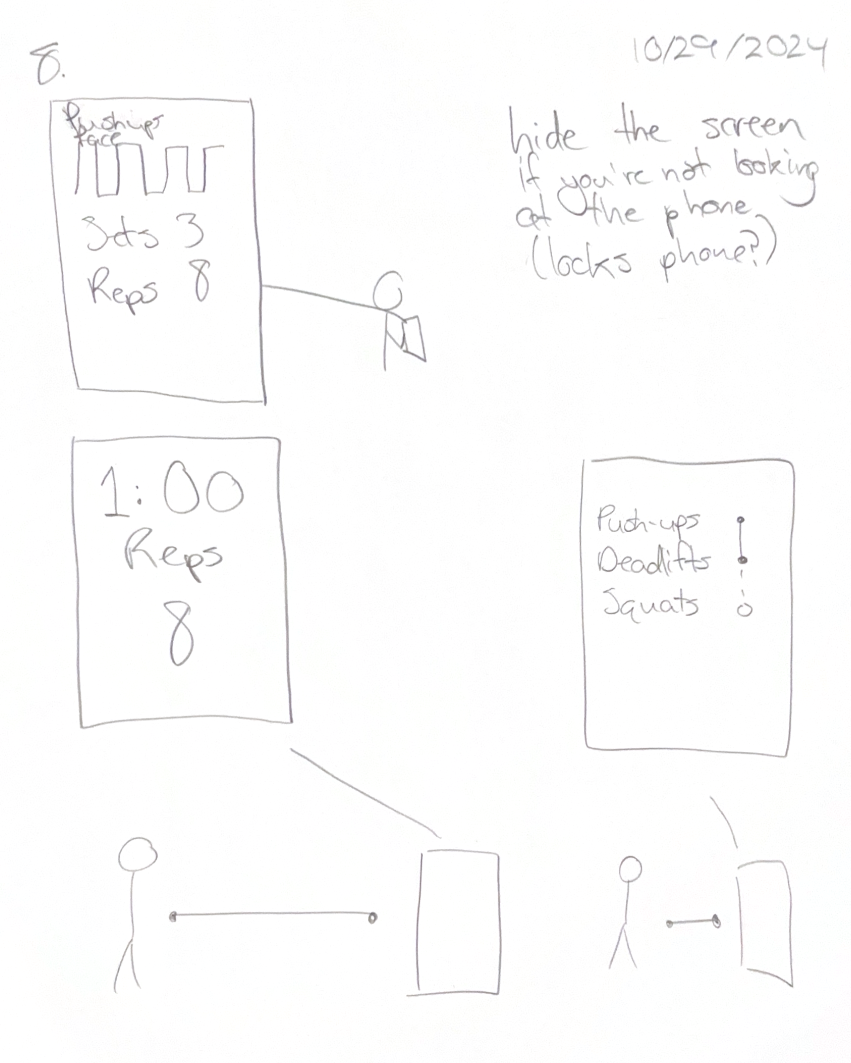 8.
10/29/2024
Pushups
Pace
Sets 3
Reps 8
hide the screen
if you're not looking
at the phone
(locks phone?)
1:00
Reps
8
Push-ups
Deadlifts
Squats